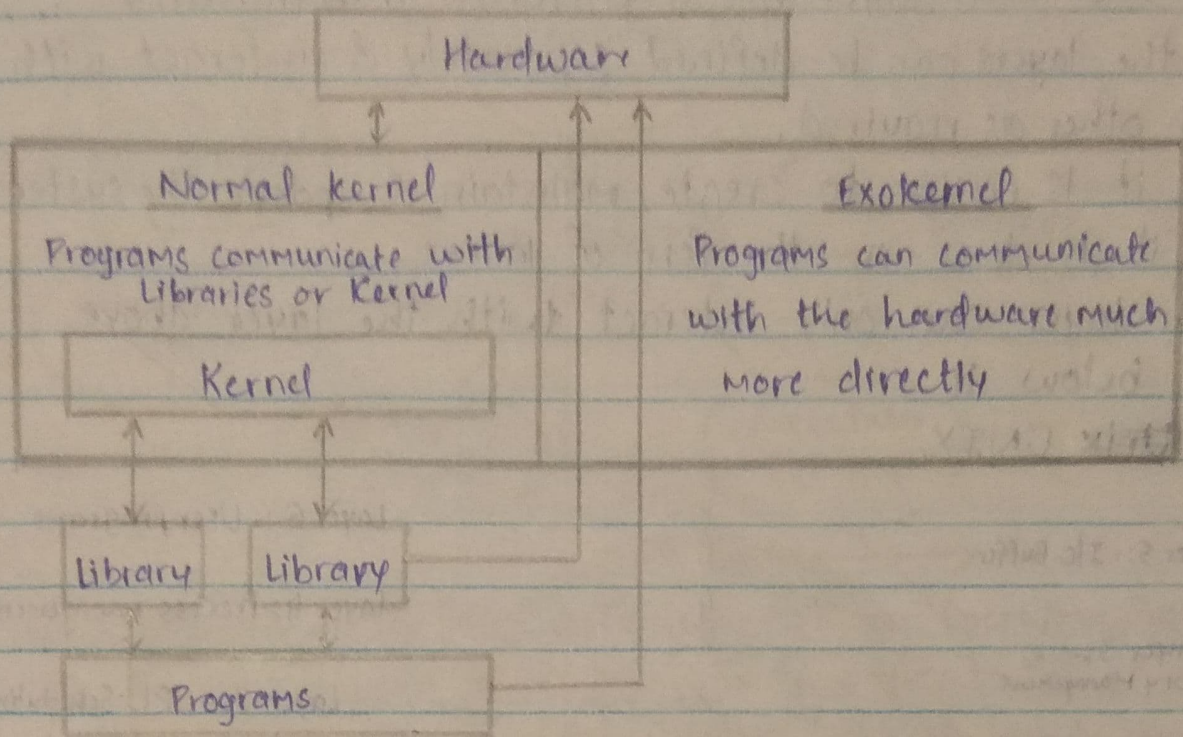 Hardware
Normal kernel
Programs communicate with
Libraries or Kernel
Kernel
Exokernel
Programs can communicate
with the hardware much
more directly
Library
Library
Programs